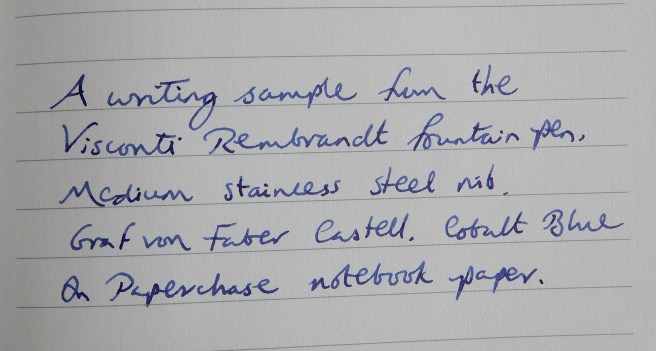 A writing sample from the
Visconti Rembrandt fountain pen.
Medium stainless steel nib.
Graf von Faber Castell. Cobalt Blue
On Paperchase notebook paper.